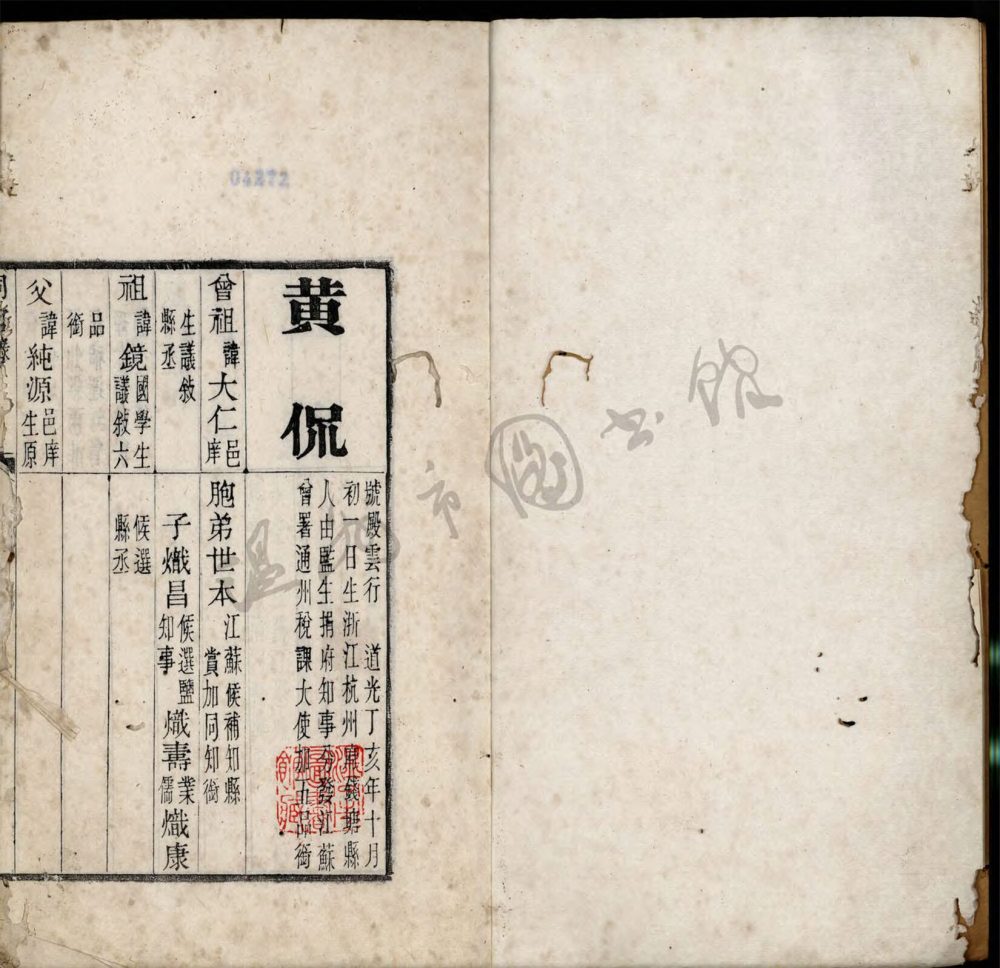 04272
黄侃
號殿雲行　道光丁亥年十月
初一日生浙江杭州府錢塘縣
人由監生捐府知事分發江蘇
曾署通州稅課大使加五品銜
曾祖諱大仁邑庠
生議敘
縣丞
胞弟世本江蘇候補知縣
賞加同知銜
祖諱鏡國學生
議敘六
品
銜
子熾昌候選鹽
知事
熾壽業
儒
熾康
候選
縣丞
父諱純源邑庠
生原
溫州市圖書館